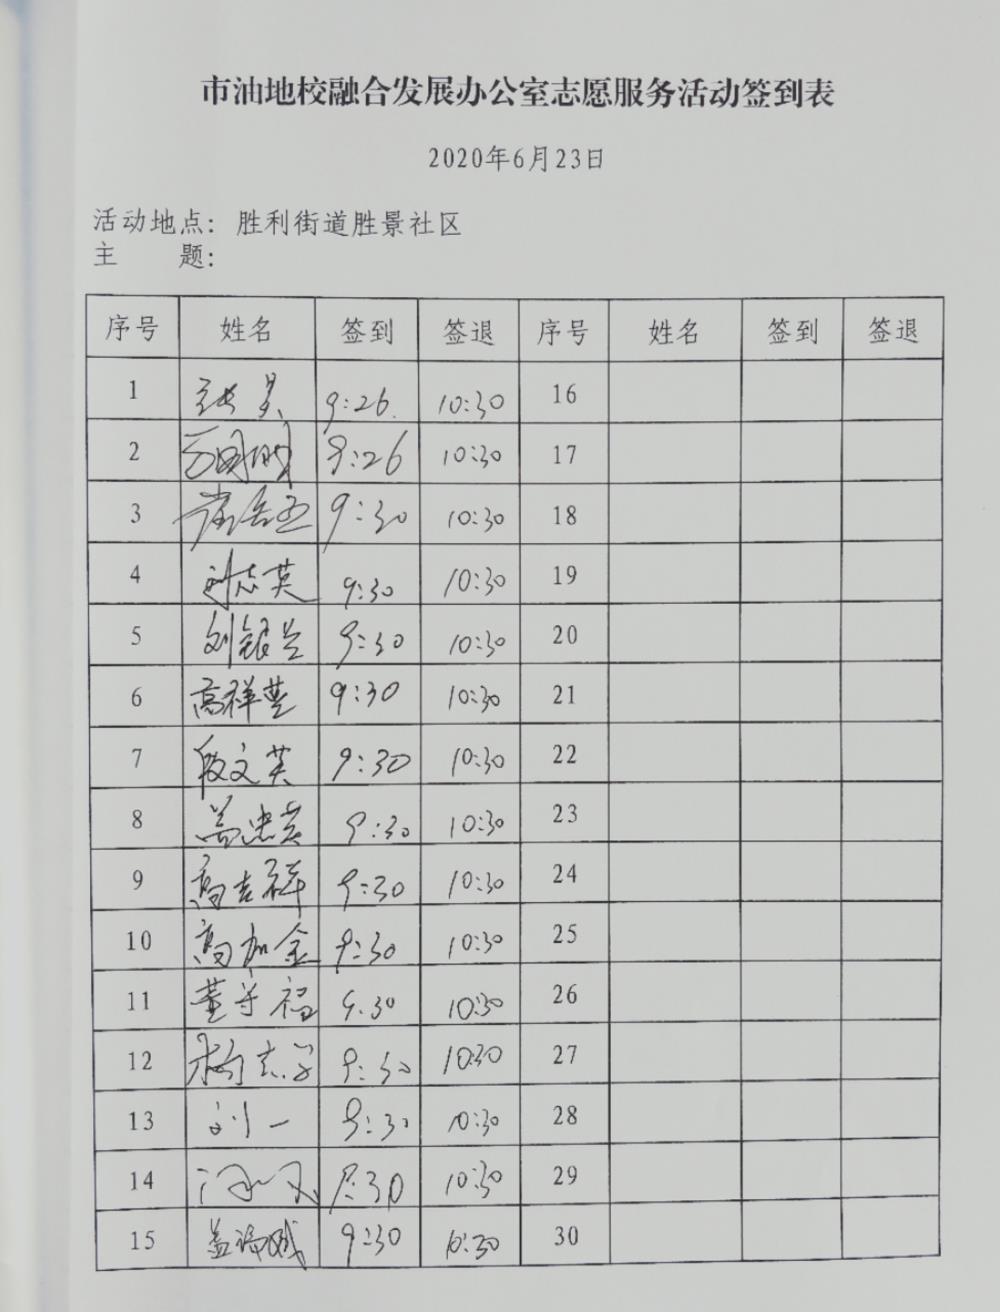 市油地校融合发展办公室志愿服务活动签到表
2020年6月23日
活动地点：胜利街道胜景社区
主 题：
序号 姓名 签到 签退 序号 姓名 签到 签退
1 9:26 10:30 16
2 9:26 10:30 17
3 9:30 10:30 18
4 刘志英 9:30 10:30 19
5 刘银兰 9:30 10:30 20
6 高祥 9:30 10:30 21
7 段文英 9:30 10:30 22
8 9:30 10:30 23
9 高吉祥 9:30 10:30 24
10 高加金 9:30 10:30 25
11 董守福 9:30 10:30 26
12 9:30 10:30 27
13 刘一 9:30 10:30 28
14 9:30 10:30 29
15 9:30 10:30 30